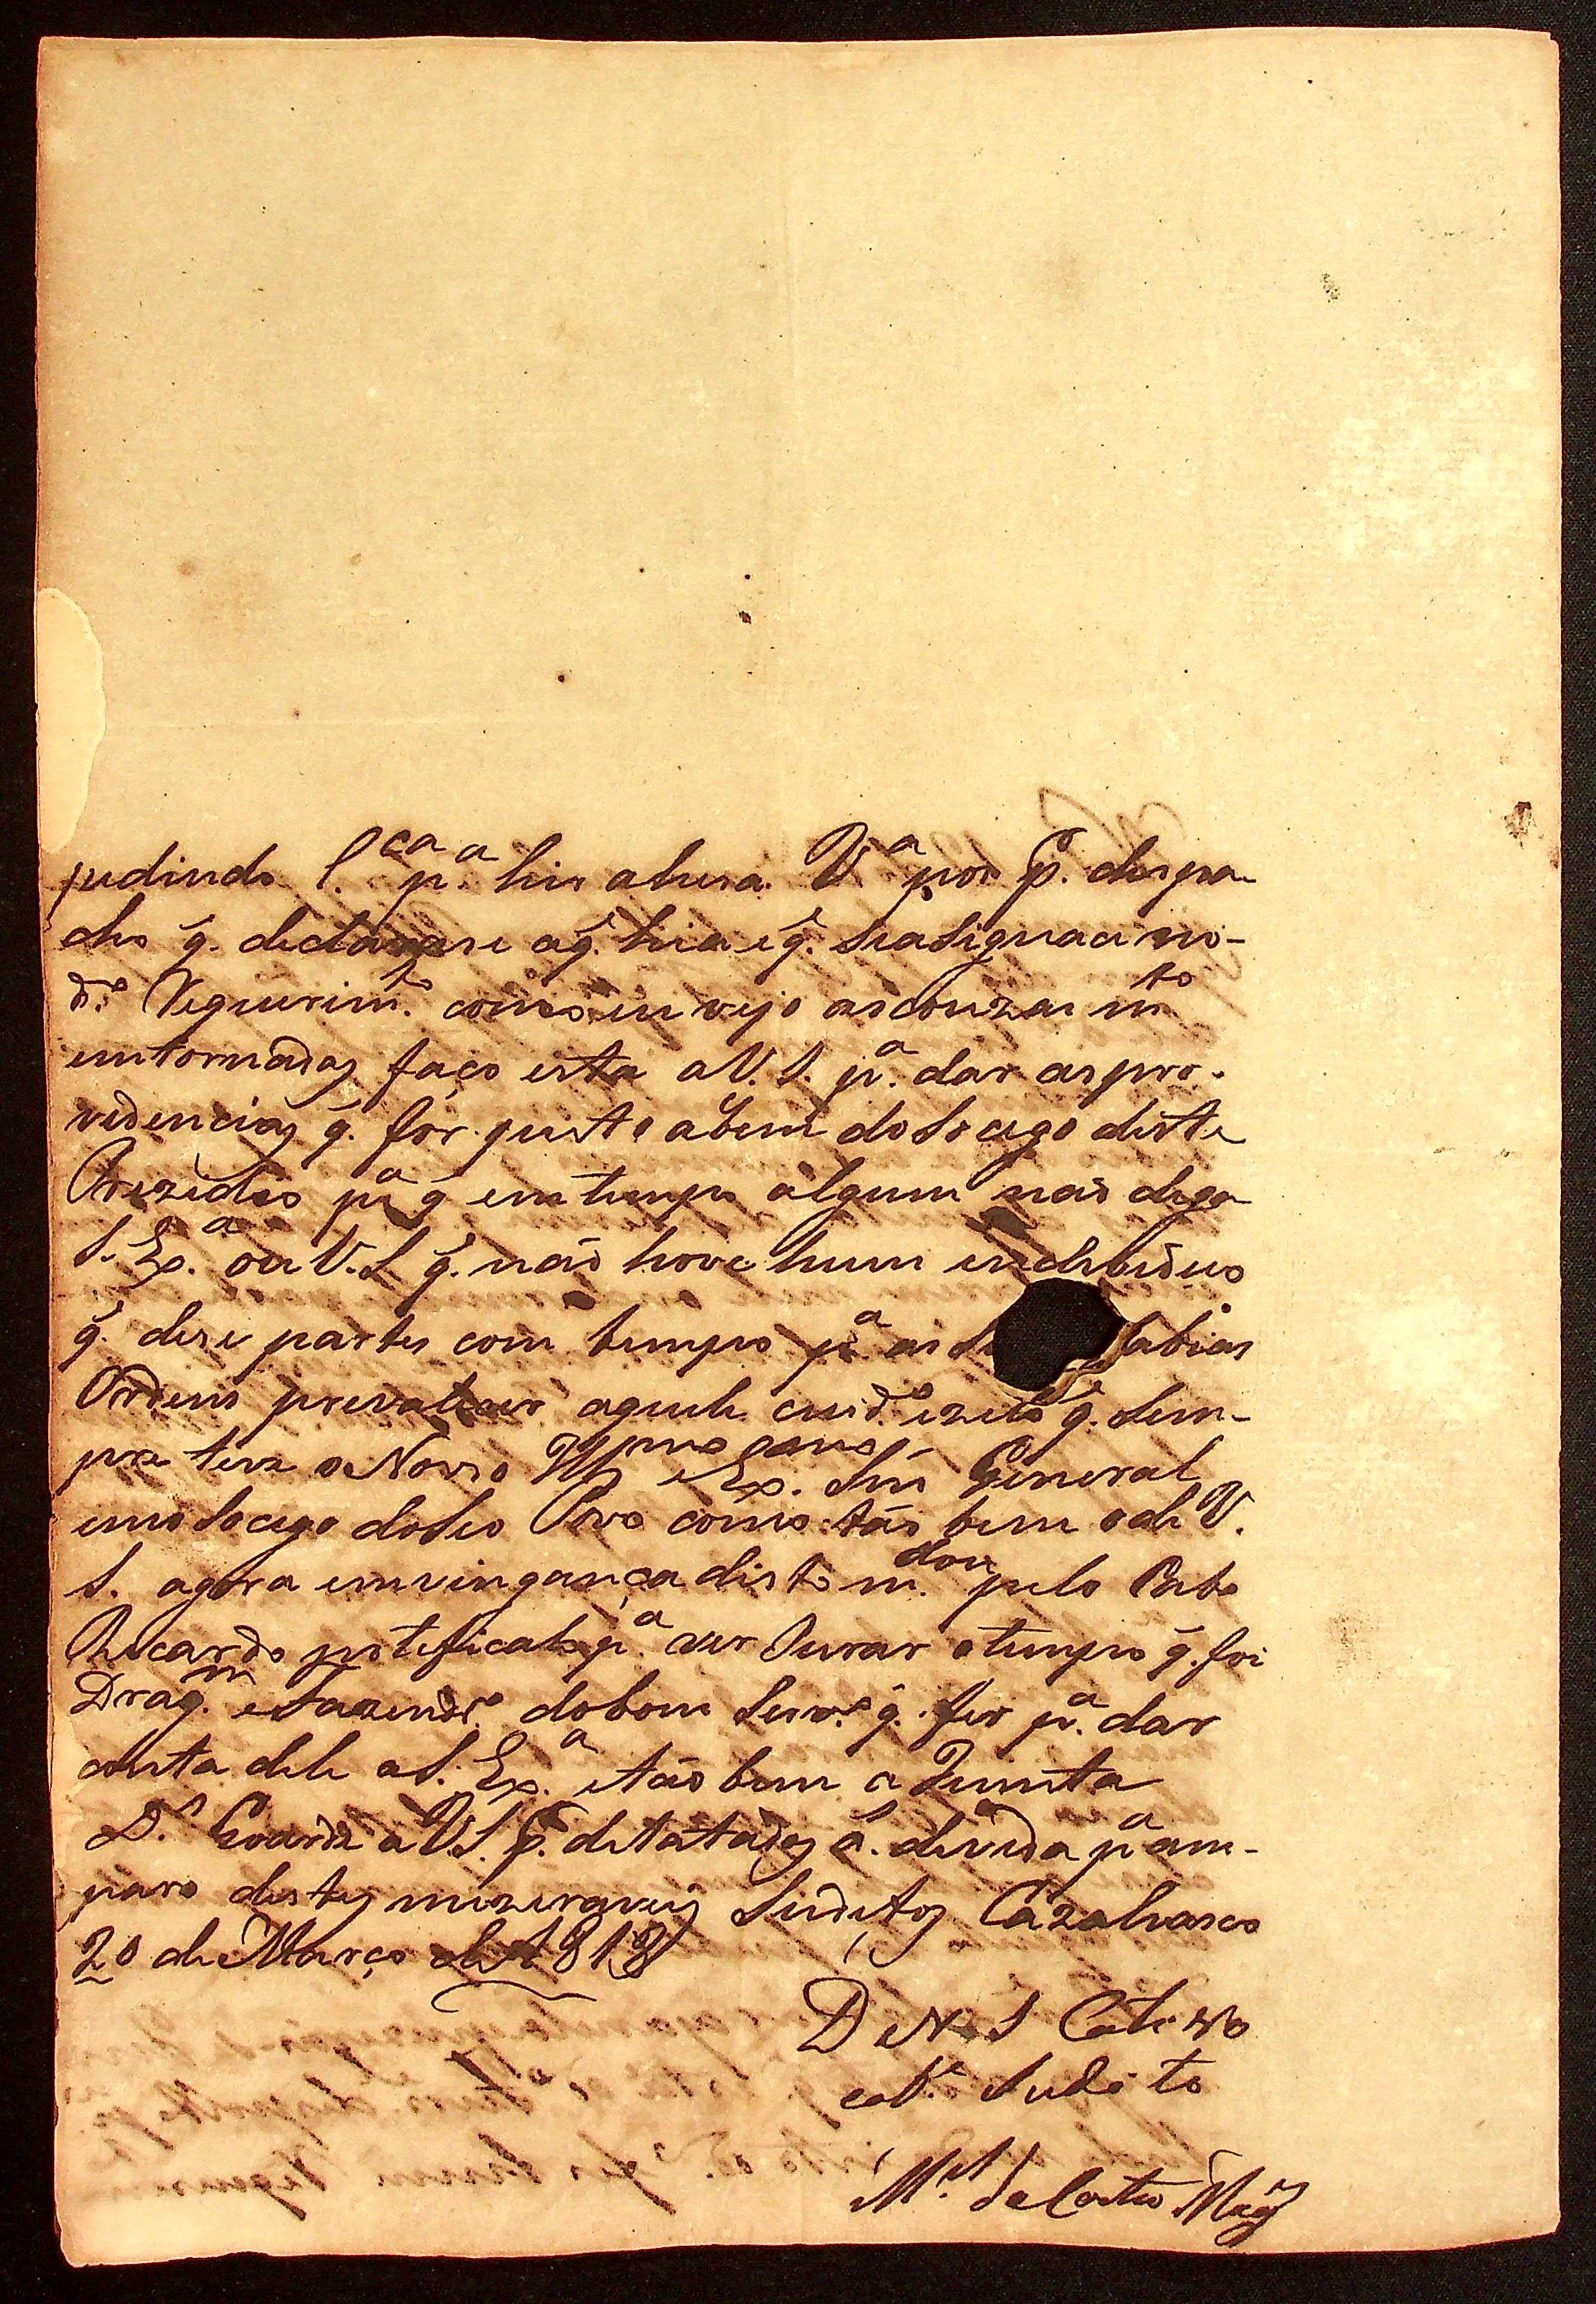 pedindo l.ᶜᵃ p.ᵃ hir a hesa V.ᵃ por q̃. despa-
cho q̃. declarase aq̃. hia e q̃. se asignaci no-
d.º Requerim.ᵗᵒ como eu vejo as couzas m.ᵗᵒ
emtornadas faço esta a V. S. p.ᵃ dar as pro-
videncias q̃. for justo abem do Socego deste
Prezidio p.ᵃ q̃ em tempo algum não diga
S. Ex.ᵃ ou V. S q̃. não hove hum endividuo
q̃. dese partes com tempo p.ᵃ as S abias
Ordens prevalecer aquele cuid.º q̃. Sem-
pre teve o Noso Ill.ᵐᵒ e Ex.ᵐᵒ Snr̃ General
em o Socego do Seo Povo como tão bem o de V.
S. agora em vingança disto m.ᵈᵒᵘ pelo Cabo
Ricardo p.ᵃ ver Jurar o tempo q̃. foi
Drag.ᵐ e Fazend.º do bom Serv.º q̃. fes p.ᵃ dar
conta dele a S. Ex.ᵃ e tão bem a Junta
D.ˢ Goarde a V. S. devida p.ᵃ am-
paro destes mizeraveis Suditos Cazalvasco
20 de Março de 1818
De V. S Cativo
e ob.ᵉ Sudito
M.ᵉˡ de Castro